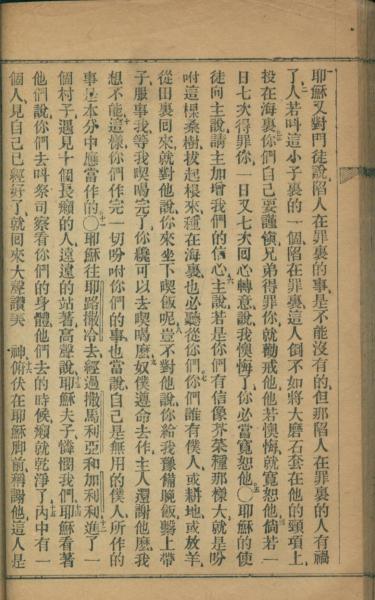 耶穌又對門徒說陷人在罪裏的事是不能沒有的但那陷人在罪裏的人有禍
了人若叫這小子裏的一個陷在罪裏這人倒不如將大磨石套在他的頸項上
投在海裏你們自己要謹愼兄弟得罪你就勸戒他他若懊悔就寬恕他倘若一
日七次得罪你一日又七次回心轉意說我懊悔了你必當寬恕他〇耶穌的使
徒向主說請主加增我們的信心主說若是你們有信像芥菜種那樣大就是吩
咐這棵桑樹拔起根來種在海裏也必聽從你們你們誰有僕人或耕地或放羊
從田裏回來就對他說你來坐下喫飯呢豈不對他說你給我豫備晚飯繫上帶
子服事我等我喫喝完了你纔可以去喫喝麼奴僕遵命去作主人還謝他麼我
想不能這樣你們作完一切吩咐你們的事也當說自己是無用的僕人所作的
事是本分中應當作的〇耶穌往耶路撒冷去經過撒馬利亞和加利利進了一
個村子遇見十個長癩的人遠遠的站著高聲說耶穌夫子憐憫我們耶穌看著
他們說你們去叫祭司察看你們的身體他們去的時候癩就乾淨了內中有一
個人見自己已經好了就回來大聲讚美 神俯伏在耶穌脚前稱謝他這人是